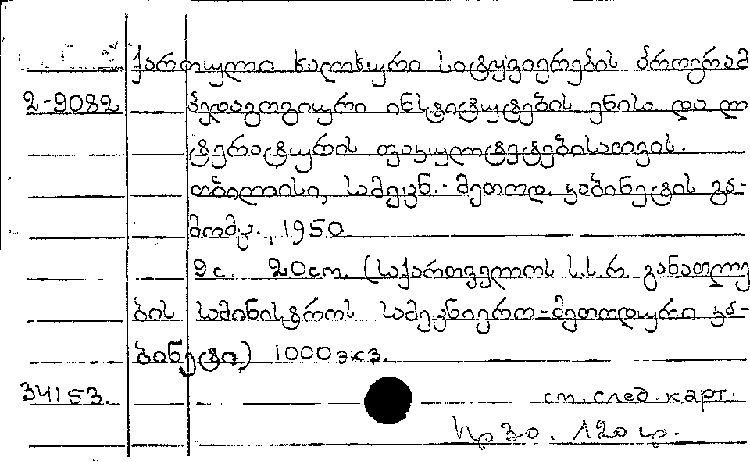 ქართული ხალხური სიტყვიერების პროგრამ
2-9082 პედაგოგიური ინსტიტუტების ენისა და ლი
ტერატურის ფაკულტეტებისათვის.
თბილისი, სამეცნ.-მეთოდ. კაბინეტის გა-
მომც., 1950
9с. 20см. (საქართველოს ს.ს.რ. განათლე
ბის სამინისტროს სამეცნიერო-მეთოდური კა-
ბინეტი) 1000 экз.
34153. см. след. карт.
120